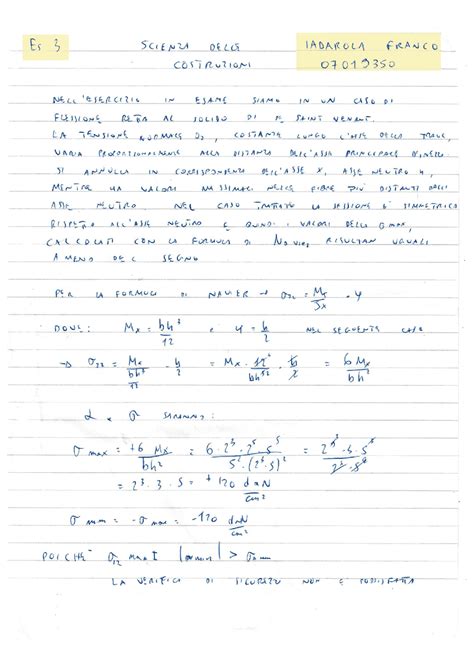 Es 3 SCIENZA DELLE IADAROLA FRANCO
COSTRUZIONI 07019350
NELL'ESERCIZIO IN ESAME SIAMO IN UN CASO DI
FLESSIONE RETTA AL SOLIDO DI SAINT VENANT.
LA TENSIONE NORMALE COSTANTE LUNGO L'ASSE DELLA TRAVE,
VARIA PROPORZIONALMENTE ALLA DISTANZA DELL'ASSE PRINCIPALE D'INERZIA
SI ANNULLA IN CORRISPONDENZA DELL'ASSE X, ASSE NEUTRO,
MENTRE HA VALORI MASSIMALI NELLE FIBRE PIÙ DISTANTI DALL'
ASSE NEUTRO. NEL CASO TRATTATO LA SEZIONE È SIMMETRICA
RISPETTO ALL'ASSE NEUTRO E QUINDI I VALORI DELLA
CALCOLATI CON LA FORMULA DI NAVIER RISULTAN UGUALI
A MENO DEL SEGNO
PER LA FORMULA DI NAVIER → σzz = Mx/Jx · y
DOVE: Mx = bh³/12 e y = h/2 NEL SEGUENTE CASO
→ σzz = Mx/(bh³/12) · h/2 = Mx · 12/bh³ · h/2 = 6Mx/bh²
σ SARANNO:
σ max = +6 Mx/bh² = 6·2³·2⁵·5⁵/5²·(2⁴·5)²
= 2³·3·5 = +120 daN/cm²
σ min = -σ max = -120 daN/cm²
POICHÉ σzz max I |σmin| > σamm
LA VERIFICA DI SICUREZZA NON È SODDISFATTA